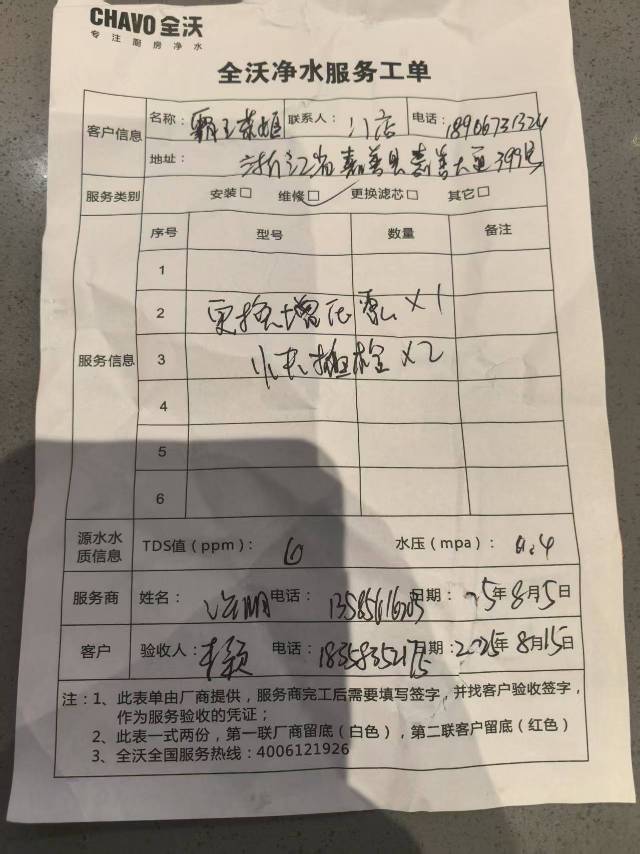 CHAVO 全沃
专注厨房净水
全沃净水服务工单
客户信息 名称：霸王茶姬 联系人：门店 电话：18906731324
地址：浙江省嘉善县嘉善大道399号
服务类别 安装□ 维修□✓ 更换滤芯□ 其它□
服务信息 序号 型号 数量 备注
1
2 更换增压泵 ×1
3 插拴 ×2
4
5
6
源水水质信息 TDS值（ppm）：6 水压（mpa）：0.4
服务商 姓名： 电话： 日期：25年8月15日
客户 验收人： 颖 电话： 日期：2025年8月15日
注：1、此表单由厂商提供，服务商完工后需要填写签字，并找客户验收签字，
作为服务验收的凭证；
2、此表一式两份，第一联厂商留底（白色），第二联客户留底（红色）
3、全沃全国服务热线：4006121926